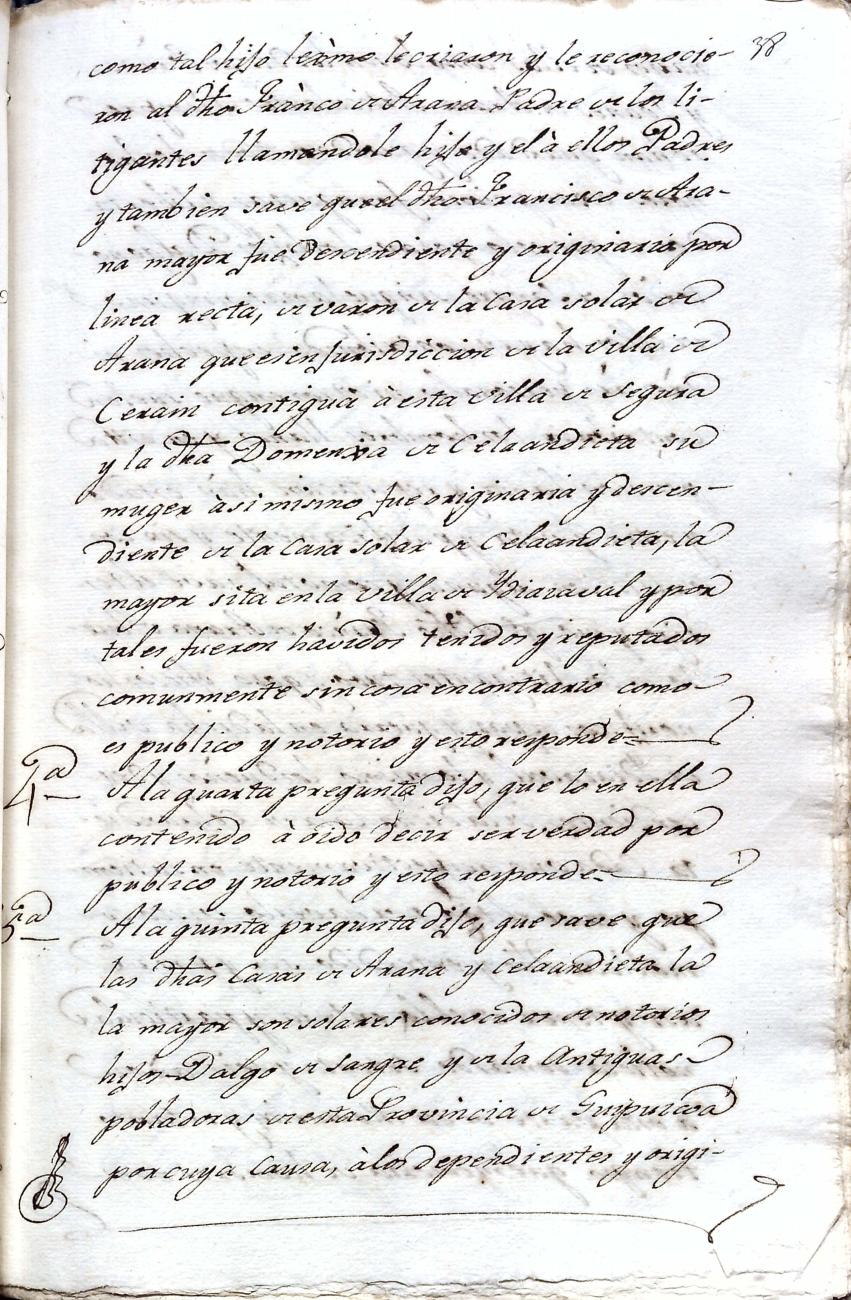 38
como tal hijo le àmo le criaron y le reconocie-
ron al dho Franco de Arana Padre de los li-
tigantes llamandole hijo y el à ellos Padres
y tambien save que el dho Francisco de Ara-
na mayor fue Descendiente y originario por
linea recta, de varon de la Casa solar de
Arana que es en Jurisdiccion de la villa de
Cerain contigua à esta villa de Segura
y la dha Domenxa de Celaandieta su
muger àsimismo fue originaria y descen-
diente de la Casa solar de Celaandieta, la
mayor sita en la villa de Ydiazaval y por
tales fueron havidos tenidos y reputados
comunmente sin cosa en contrario como
es publico y notorio y esto responde=
4a A la quarta pregunta dijo, que lo en ella
contenido à oido decir ser verdad por
publico y notorio y esto responde=
5a A la quinta pregunta dijo, que save que
las dhas Casas de Arana y Celaandieta la
la mayor son solares conocidos de notorios
hijos-Dalgo de sangre y de la Antiguas
pobladoras de esta Provincia de Guipuzcoa
por cuya Causa, à los dependientes y origi-